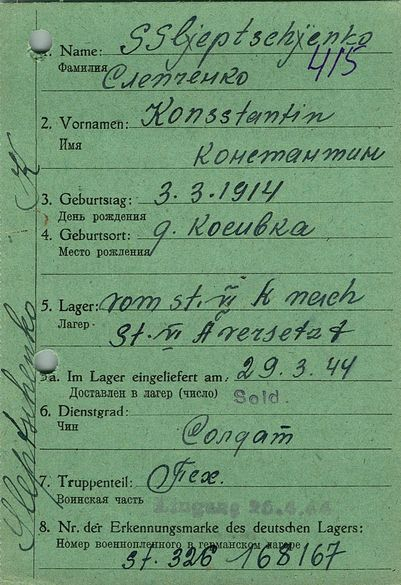 1. Name: SSljeptschjenko
Фамилия 415
Слепченко
2. Vornamen: Konsstantin
Имя
Константин
3. Geburtstag: 3.3.1914
День рождения
4. Geburtsort: д. Косивка
Место рождения
5. Lager: vom St. VI K nach
Лагерь St. VI A versetzt
5a. Im Lager eingeliefert am: 29.3.44
Доставлен в лагер (число) Sold.
6. Dienstgrad:
Чин Солдат
7. Truppenteil: Пех.
Воинская часть Eingang 26.4.44
8. Nr. der Erkennungsmarke des deutschen Lagers:
Номер военнопленного в германском лагере
St. 326 168167
Sleptschenko K